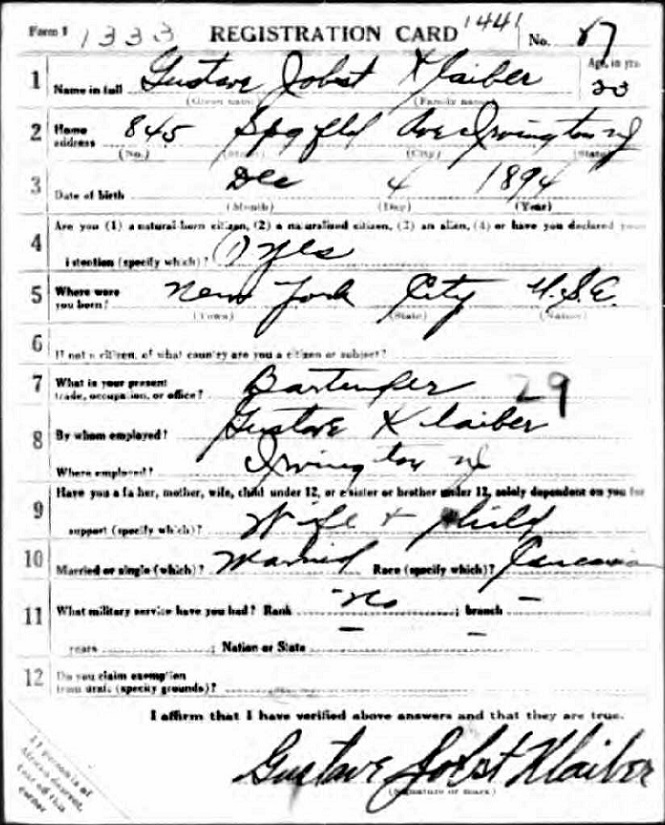 Form 1 1333 REGISTRATION CARD 1441 No. 87
1 Name in full Gustave Jobst Klaiber Age, in yrs. 22
(Given name) (Family name)
2 Home address 845 Spgfld Ave Irvington NJ
(No.) (Street) (City) (State)
3 Date of birth Dec 4 1894
(Month) (Day) (Year)
4 Are you (1) a natural-born citizen, (2) a naturalized citizen, (3) an alien, (4) or have you declared your
intention (specify which)? (1) yes
5 Where were you born? New York City U.S.A.
(Town) (State) (Nation)
6 If not a citizen, of what country are you a citizen or subject?
7 What is your present trade, occupation, or office? Bartender 29
8 By whom employed? Gustave Klaiber
Where employed? Irvington NJ
9 Have you a father, mother, wife, child under 12, or a sister or brother under 12, solely dependent on you for
support (specify which)? Wife + child
10 Married or single (which)? Married Race (specify which)? Caucasian
11 What military service have you had? Rank no ; branch —
years — ; Nation or State —
12 Do you claim exemption from draft (specify grounds)?
I affirm that I have verified above answers and that they are true.
Gustave Jobst Klaiber
(Signature or mark)
If person is of
African descent,
tear off this
corner